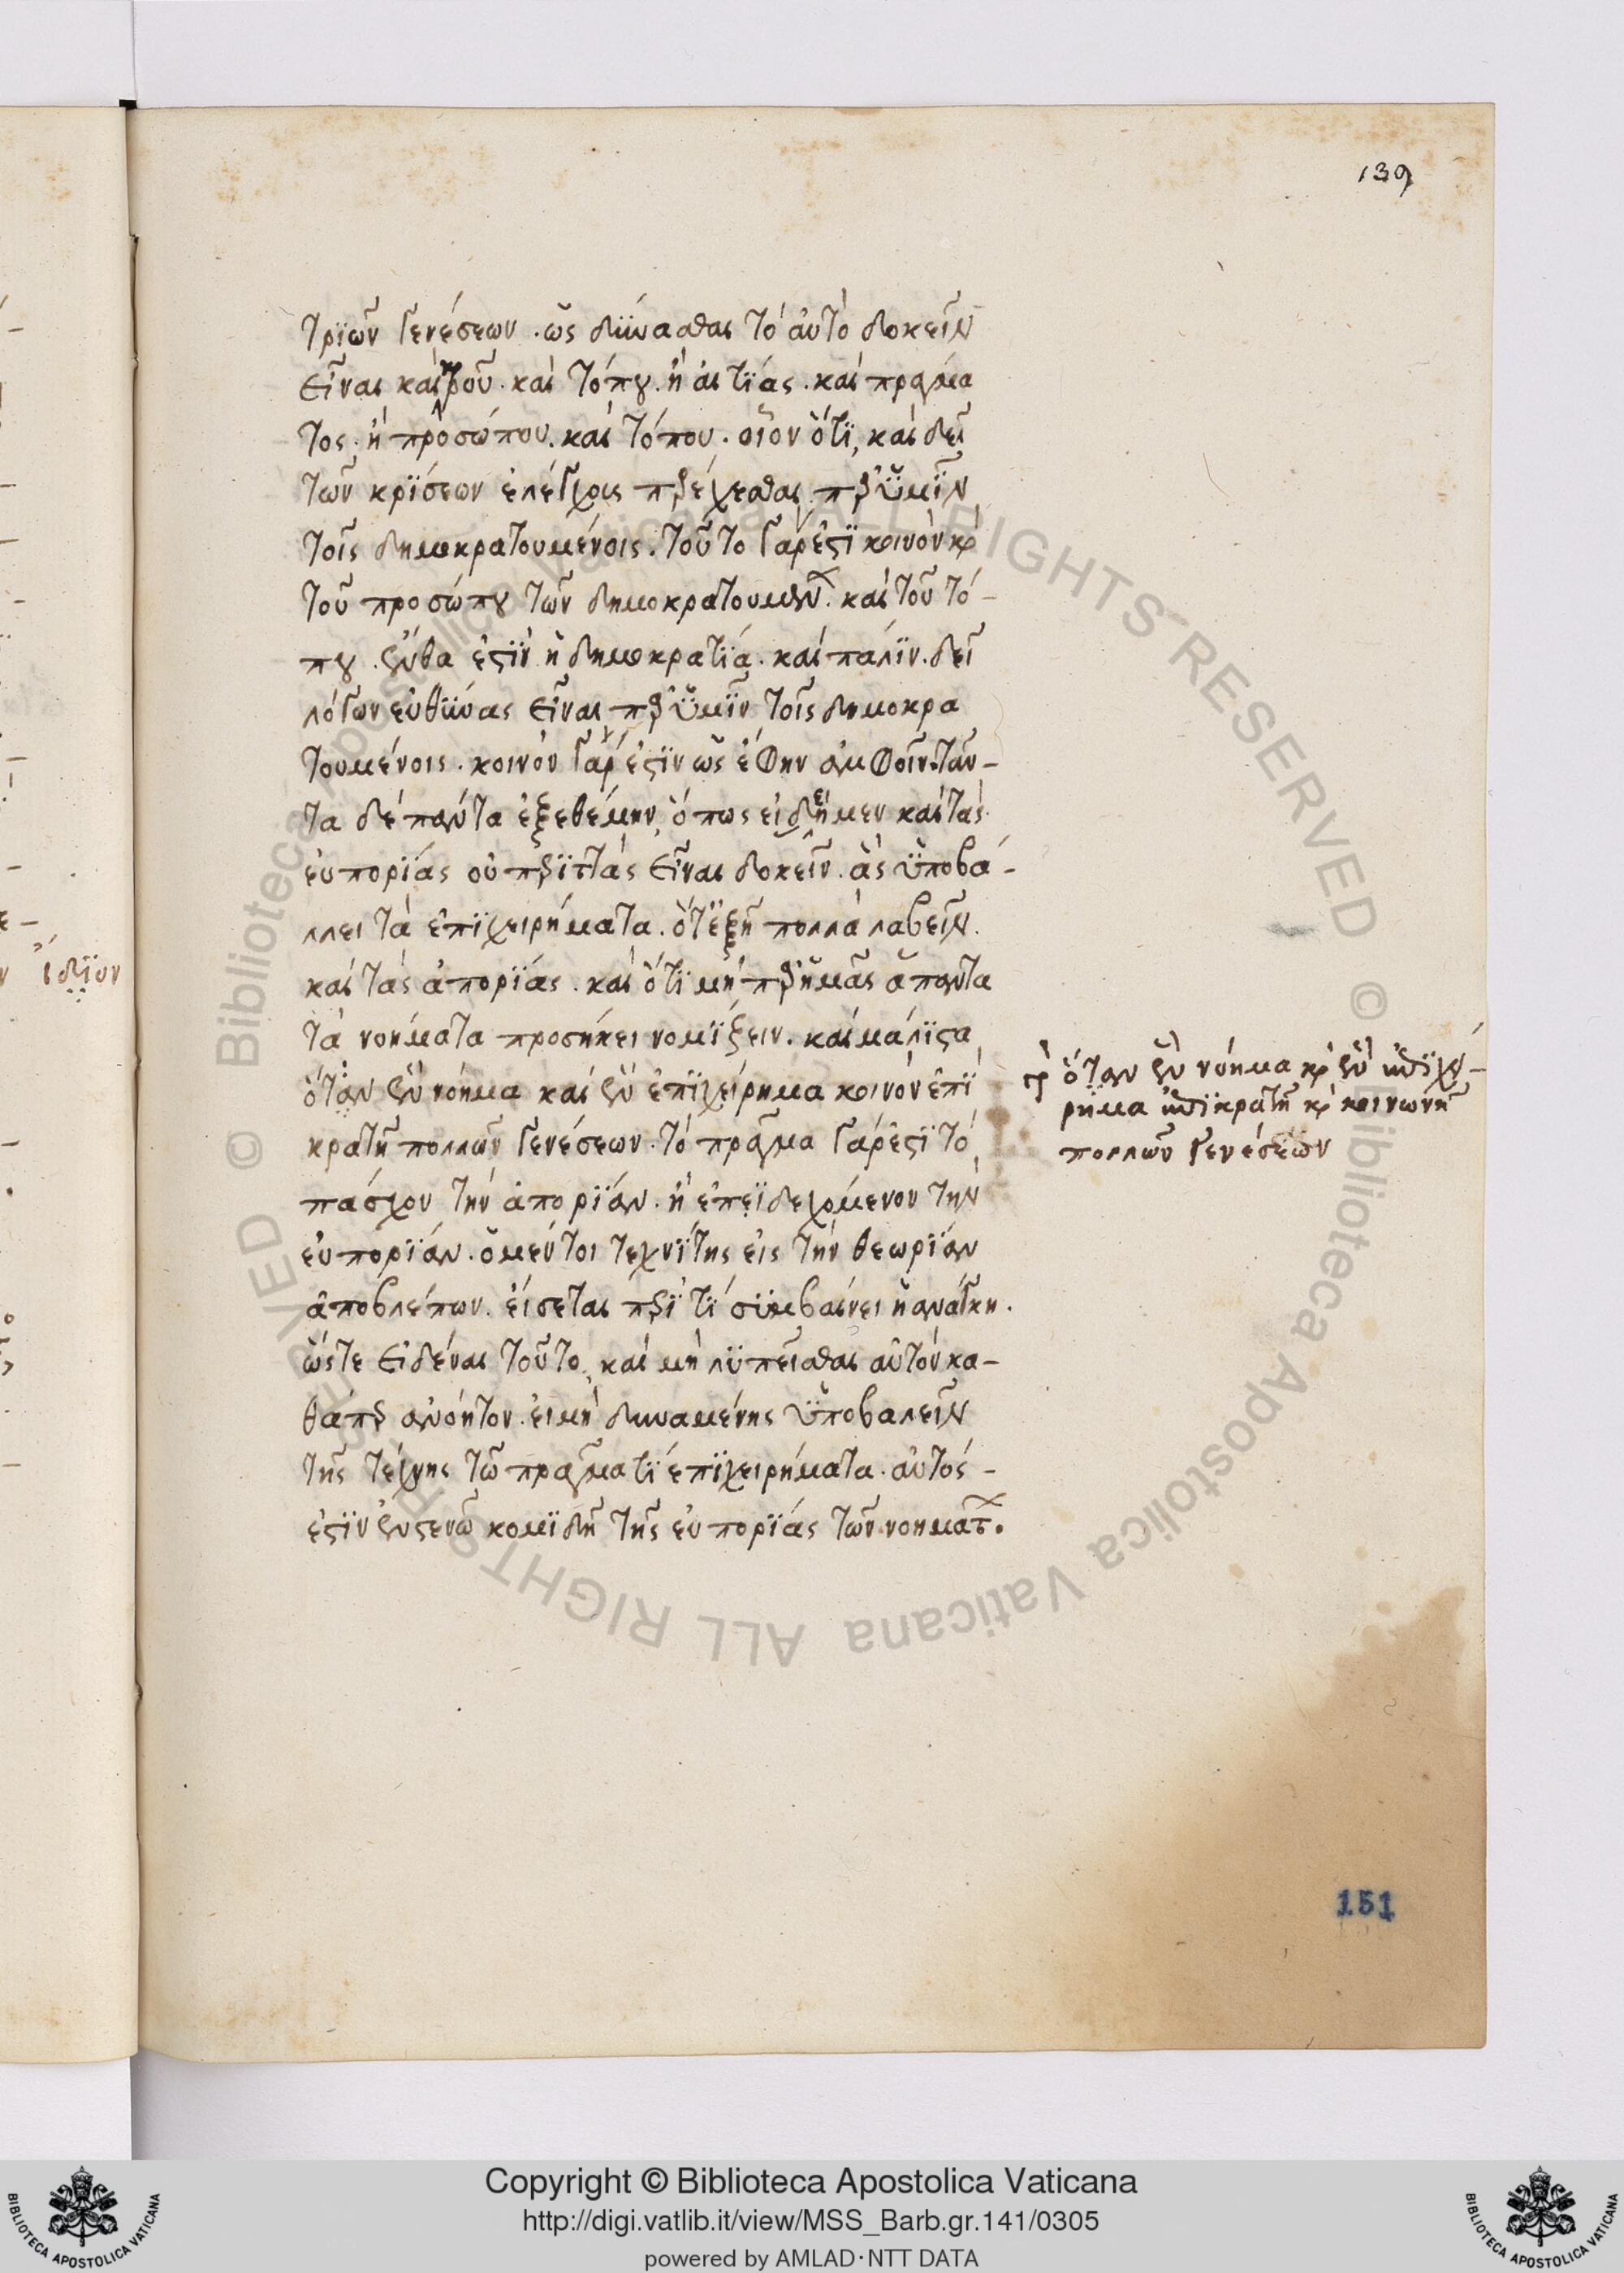 139
τρϊῶν γενέσεων. ὡς δύνασθαι τὸ αὐτὸ δοκεῖν
εἶναι καὶ ροῦ. καὶ τόπου. ἢ αἰτϊάς. καὶ πράγμα
τος. ἢ προσώπου. καὶ τόπου. οἷον ὅτϊ, καὶ δεῖ
τῶν κρϊσεων ἐλέγχοις προσέχεσθαι παρ' ὑμῖν
τοῖς δημοκρατουμένοις. τοῦτο γάρ ἐστϊ κοινὸν καὶ
τοῦ προσώπου τῶν δημοκρατουμένων. καὶ τοῦ τό-
που. ἔνθα ἐστϊν ἡ δημοκρατϊα. καὶ πάλϊν. δεῖ
λόγων εὐθϋνας εἶναι παρ' ὑμῖν τοῖς δημοκρα
τουμένοις. κοινὸν γάρ ἐστϊν ὡς ἔφην ἀμφοῖν. ταῦ-
τα δὲ πάντα ἐξεθέμην, ὅπως εἰδείημεν καὶ τὰς
εὐπορϊάς οὐ περϊττὰς εἶναι δοκεῖν. ἃς ὑποβά-
λλει τὰ ἐπϊχειρήματα. ὅτ' ἐξῆ πολλὰ λαβεῖν.
καὶ τὰς ἀπορϊάς. καὶ ὅτϊ μὴ παρ' ἡμᾶς ἅπαντα
τὰ νοήματα προσήκει νομϊζειν. καὶ μάλϊστα
ὅταν ἓν νόημα καὶ ἓν ἐπϊχείρημα κοινὸν ἐπϊ
κρατῆ πολλῶν γενέσεων. τὸ πράγμα γάρ ἐστϊ τὸ
πάσχον τὴν ἀπορϊάν. ἢ ἐπϊδεχόμενον τὴν
εὐπορϊάν. ὁ μέντοι τεχνϊτης εἰς τὴν θεωρϊάν
ἀποβλέπων. εἴσεται περϊ τϊ συμβαίνει ἡ ἀνάγκη.
ὥστε εἰδέναι τοῦτο, καὶ μὴ λϋπεῖσθαι αὐτὸν κα-
θάπερ ἀνόητον. εἰ μὴ δυναμένης ὑποβαλεῖν
τῆς τέχνης τῷ πράγματϊ ἐπϊχειρήματα. αὐτός-
ἐστϊν ἐν στενῷ κομϊδῆ τῆς εὐπορϊάς τῶν νοημάτων.
ὅταν ἓν νόημα καὶ ἓν ἐπϊχει-
ρημα ἐπϊκρατῆ καὶ κοινωνῆ
πολλῶν γενέσεων
ἴδϊον
151
© Biblioteca Apostolica Vaticana ALL RIGHTS RESERVED © Biblioteca Apostolica Vaticana ALL RIGHTS RESERVED
Copyright © Biblioteca Apostolica Vaticana
http://digi.vatlib.it/view/MSS_Barb.gr.141/0305
powered by AMLAD·NTT DATA
BIBLIOTECA APOSTOLICA VATICANA
BIBLIOTECA APOSTOLICA VATICANA